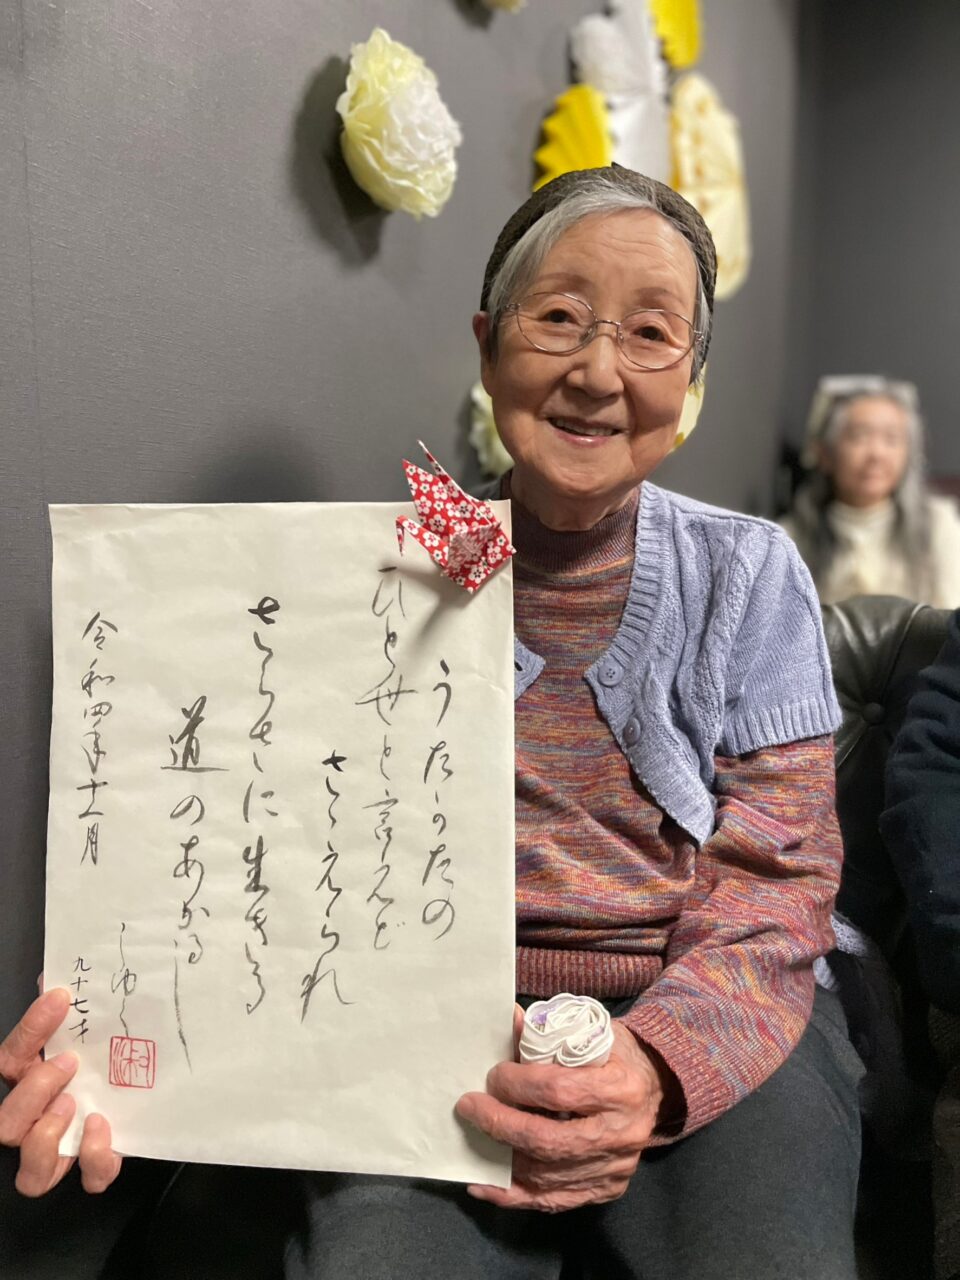 うたかたの
ひと世と言えど
さゝえられ
さらさらに生きる
道のあかるし
令和四年十一月
しゆく
九十七才